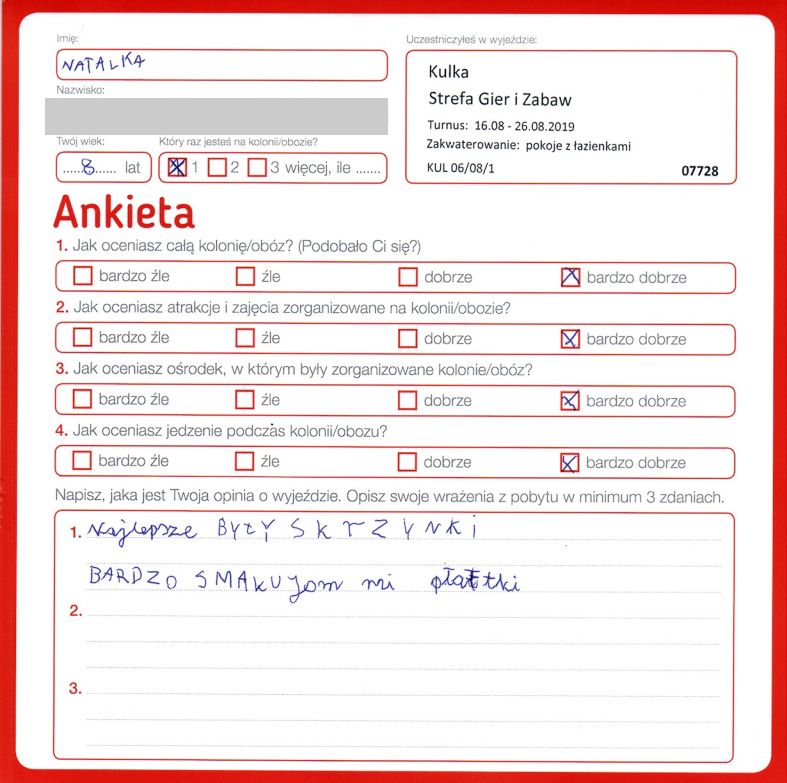 Imię:
NATALKA
Nazwisko:
Twój wiek:
8 lat
Który raz jesteś na kolonii/obozie?
1 2 3 więcej, ile .......
Uczestniczyłeś w wyjeździe:
Kulka
Strefa Gier i Zabaw
Turnus: 16.08 - 26.08.2019
Zakwaterowanie: pokoje z łazienkami
KUL 06/08/1 07728
Ankieta
1. Jak oceniasz całą kolonię/obóz? (Podobało Ci się?)
bardzo źle źle dobrze bardzo dobrze
2. Jak oceniasz atrakcje i zajęcia zorganizowane na kolonii/obozie?
bardzo źle źle dobrze bardzo dobrze
3. Jak oceniasz ośrodek, w którym były zorganizowane kolonie/obóz?
bardzo źle źle dobrze bardzo dobrze
4. Jak oceniasz jedzenie podczas kolonii/obozu?
bardzo źle źle dobrze bardzo dobrze
Napisz, jaka jest Twoja opinia o wyjeździe. Opisz swoje wrażenia z pobytu w minimum 3 zdaniach.
1. Najlepsze BYŁY SKRZYNKI
BARDZO SMAKUJOM mi płatki
2.
3.